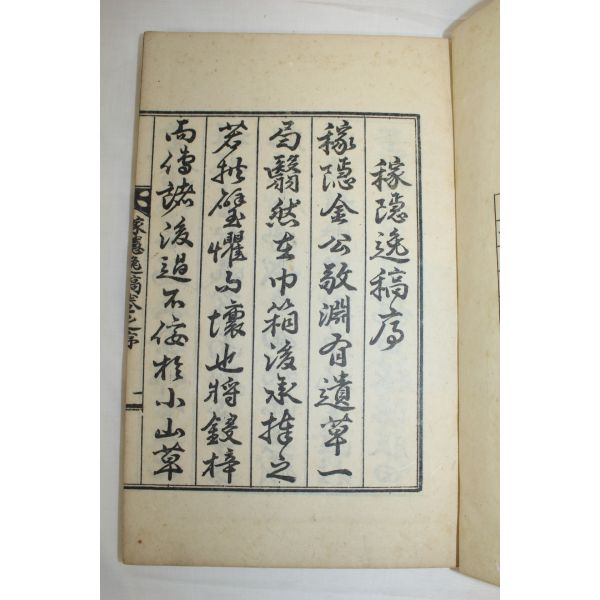 稼隱逸稿序
稼隱金公敬淵有遺草一
局翳然在巾箱後承捧之
若拱璧懼其壞也將鋟梓
而傳諸後過不佞於小山草
稼隱逸稿卷之序
一